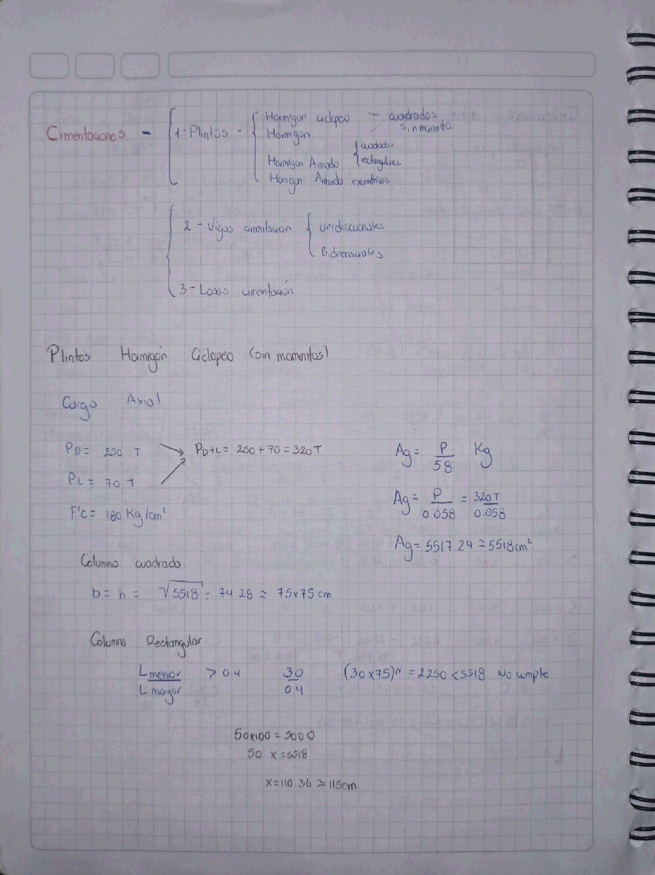 Cimentaciones -
1- Plintos -
Hormigon ciclopeo - cuadrados
sin momento
Hormigon
Hormigon Armado
cuadrados
rectangulares
Hormigon Armado excentricos
2 - Vigas cimentación
unidireccionales
Bidireccionales
3 - Losas cimentación
Plintos Hormigón Ciclopeo (sin momentos)
Carga Axial
PD = 250 T
PD+L = 250 + 70 = 320 T
PL = 70 T
F'c = 180 Kg/cm²
Ag = P / 58 Kg
Ag = P / 0.058 = 320T / 0.058
Ag = 5517.24 ≅ 5518 cm²
Columna cuadrada
b = h = √5518 = 74.28 ≅ 75x75 cm
Columna Rectangular
L menor / L mayor > 0.4
30 / 0.4
(30x75) = 2250 < 5518 No cumple
50x100 = 5000
50 x = 5518
x = 110.36 ≅ 115cm